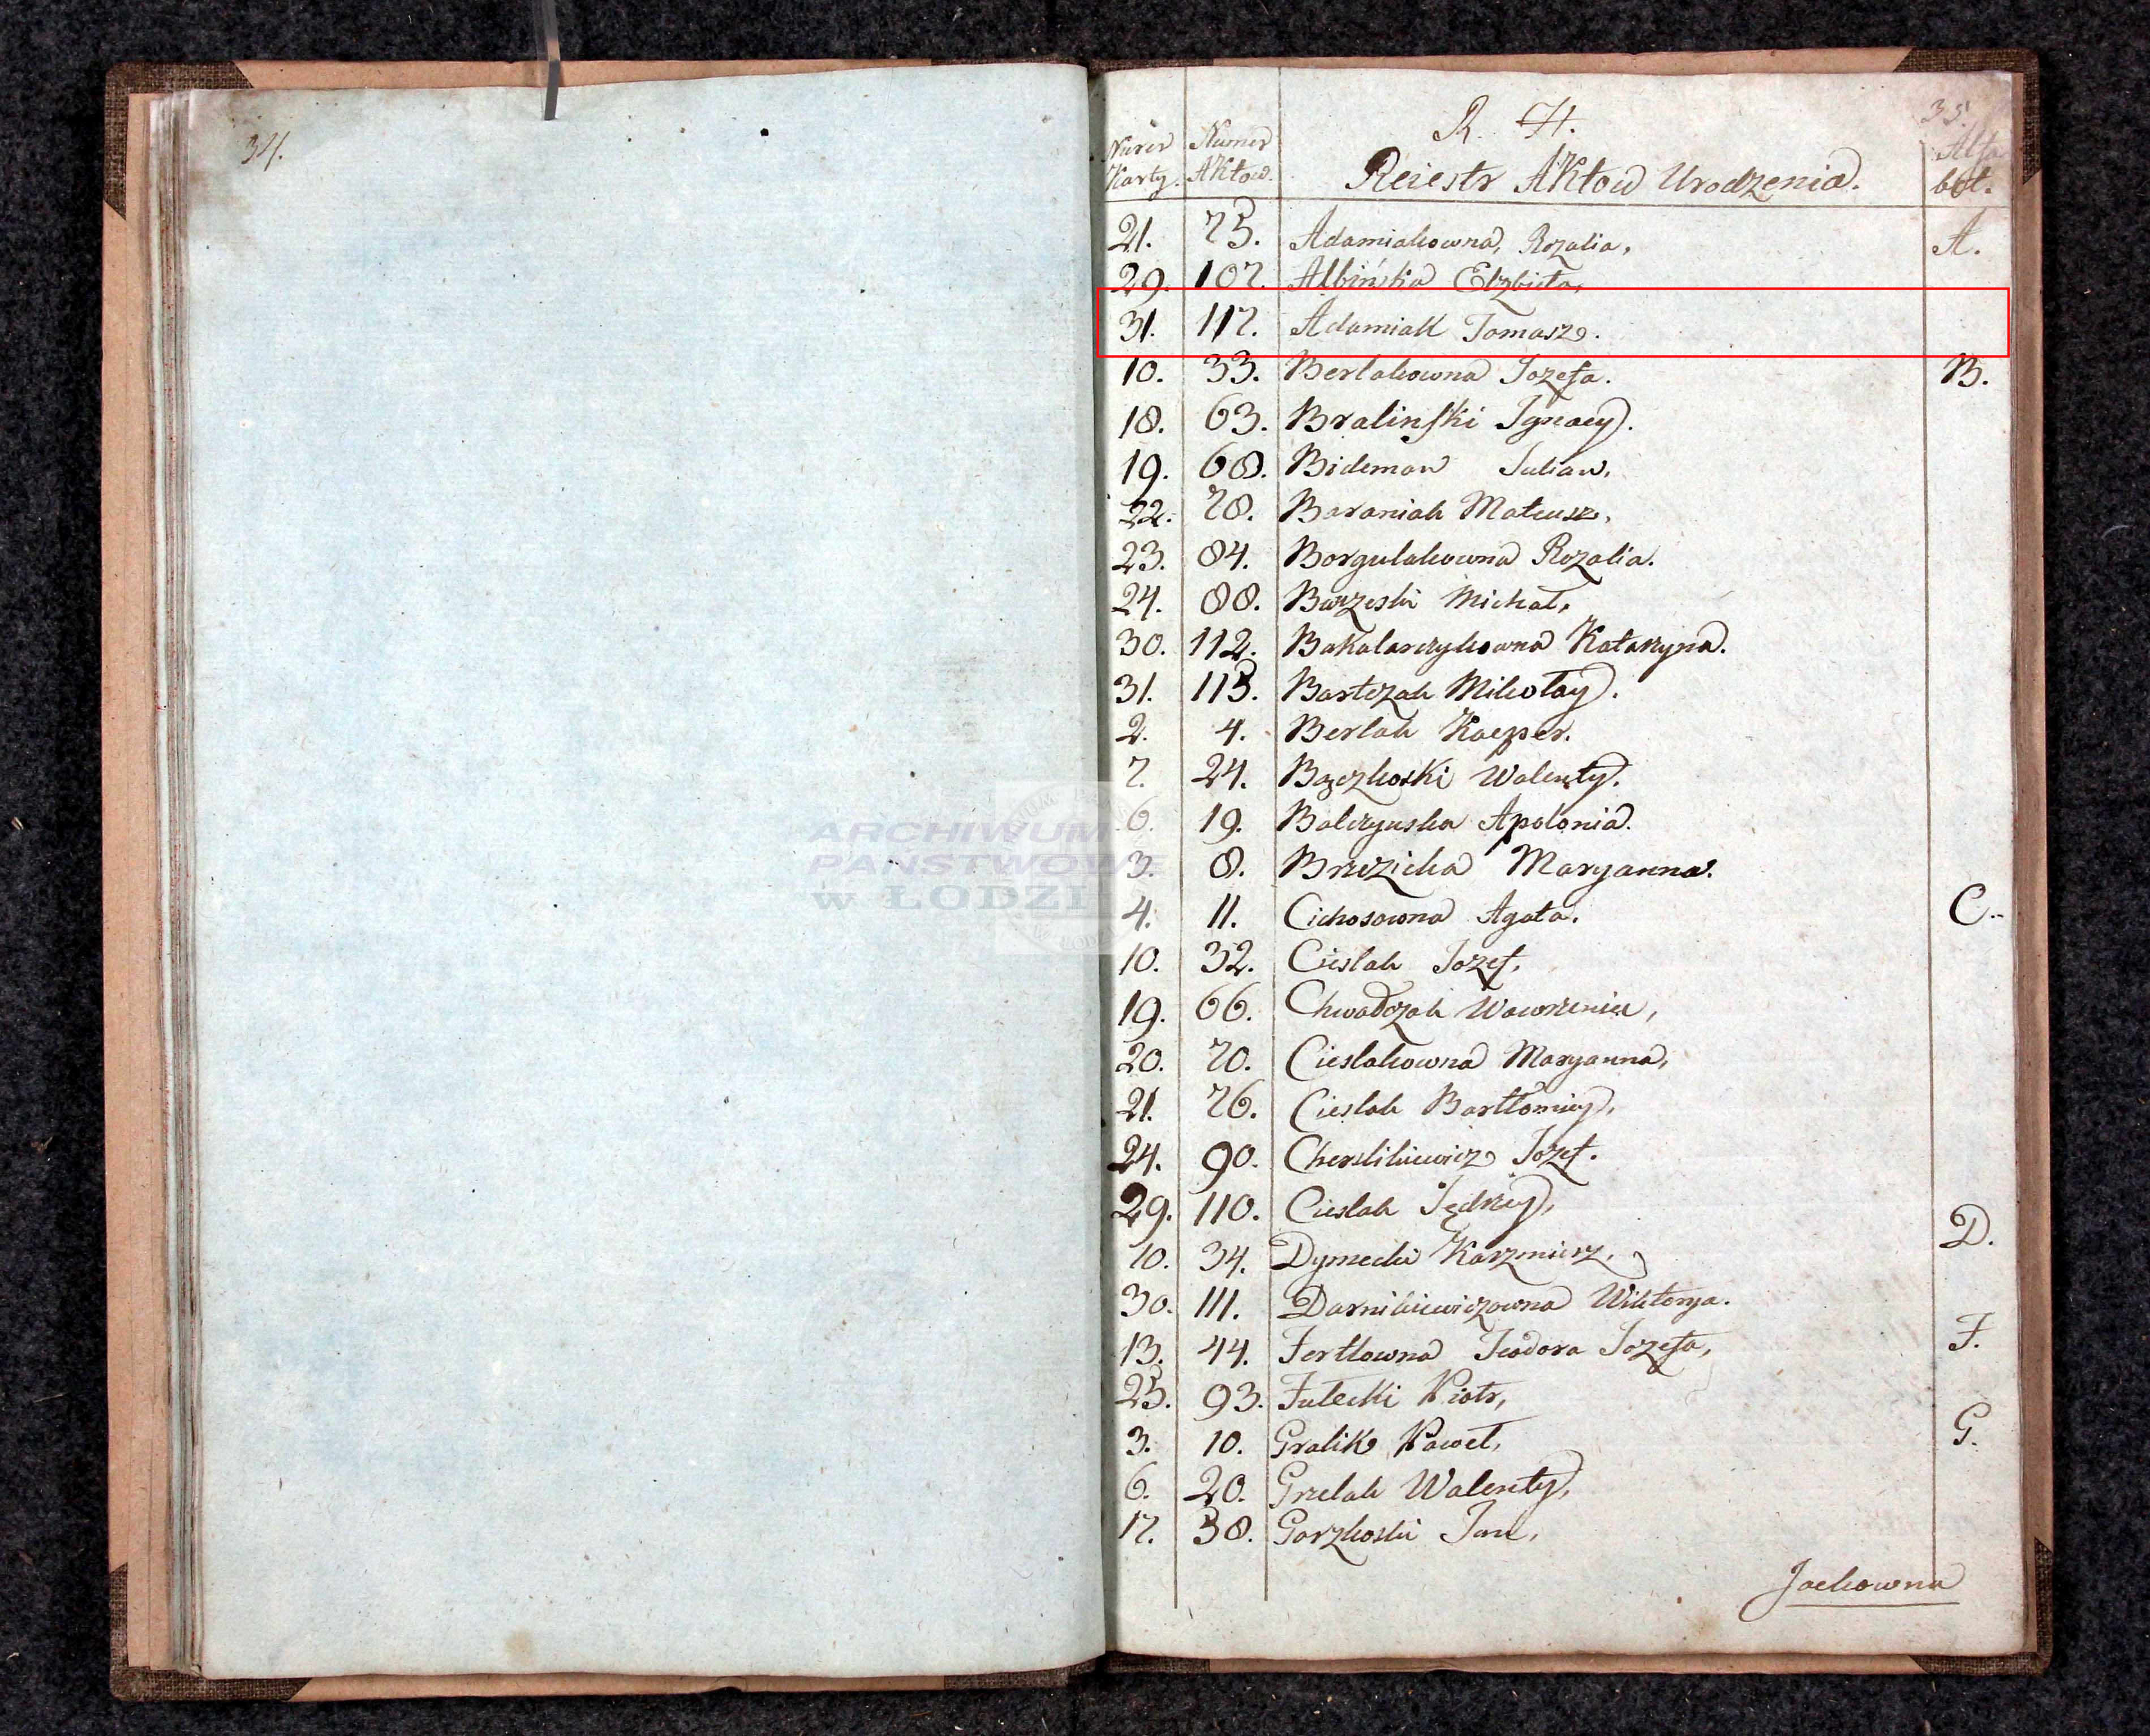 34.
35.
R. H.
Numer Karty. Numer Aktow. Reiestr Aktow Urodzenia. Alfabet.
21. 75. Adamiakowna, Rozalia, A.
29. 107. Albińska Elzbieta,
31. 117. Adamiak Tomasz.
10. 33. Berlakowna Jozefa. B.
18. 63. Bralinski Jgnacy.
19. 68. Bideman Julian,
22. 78. Baraniak Mateusz,
23. 84. Borgulakowna Rozalia.
24. 88. Michal,
30. 112. Bakalarzykowna Katarzyna.
31. 115. Bartczak Mikołay.
2. 4. Berlak Kacper.
7. 24. Bączkoski Walenty.
6. 19. Balczynska Apolonia.
3. 8. Brzezicka Maryanna.
4. 11. Cichosowna Agata. C.
10. 32. Cieslak Jozef,
19. 66. Chwadczak Wawrzeniec,
20. 70. Cieslakowna Maryanna,
21. 76. Cieslak Bartłomiey,
24. 90. Jozef.
29. 110. Cieslak Jędrzey,
10. 34. Dymecki Kazmierz. D.
30. 111. Darnikiewiczowna Wiktorya.
13. 44. Fertlowna Teodora Jozefa, F.
25. 93. Fulecki Piotr,
3. 10. Gralik Paweł, G.
6. 20. Grzelak Walenty,
17. 58. Gorzkoski Jan,
Jackowna
ARCHIWUM
PAŃSTWOWE
w ŁODZI